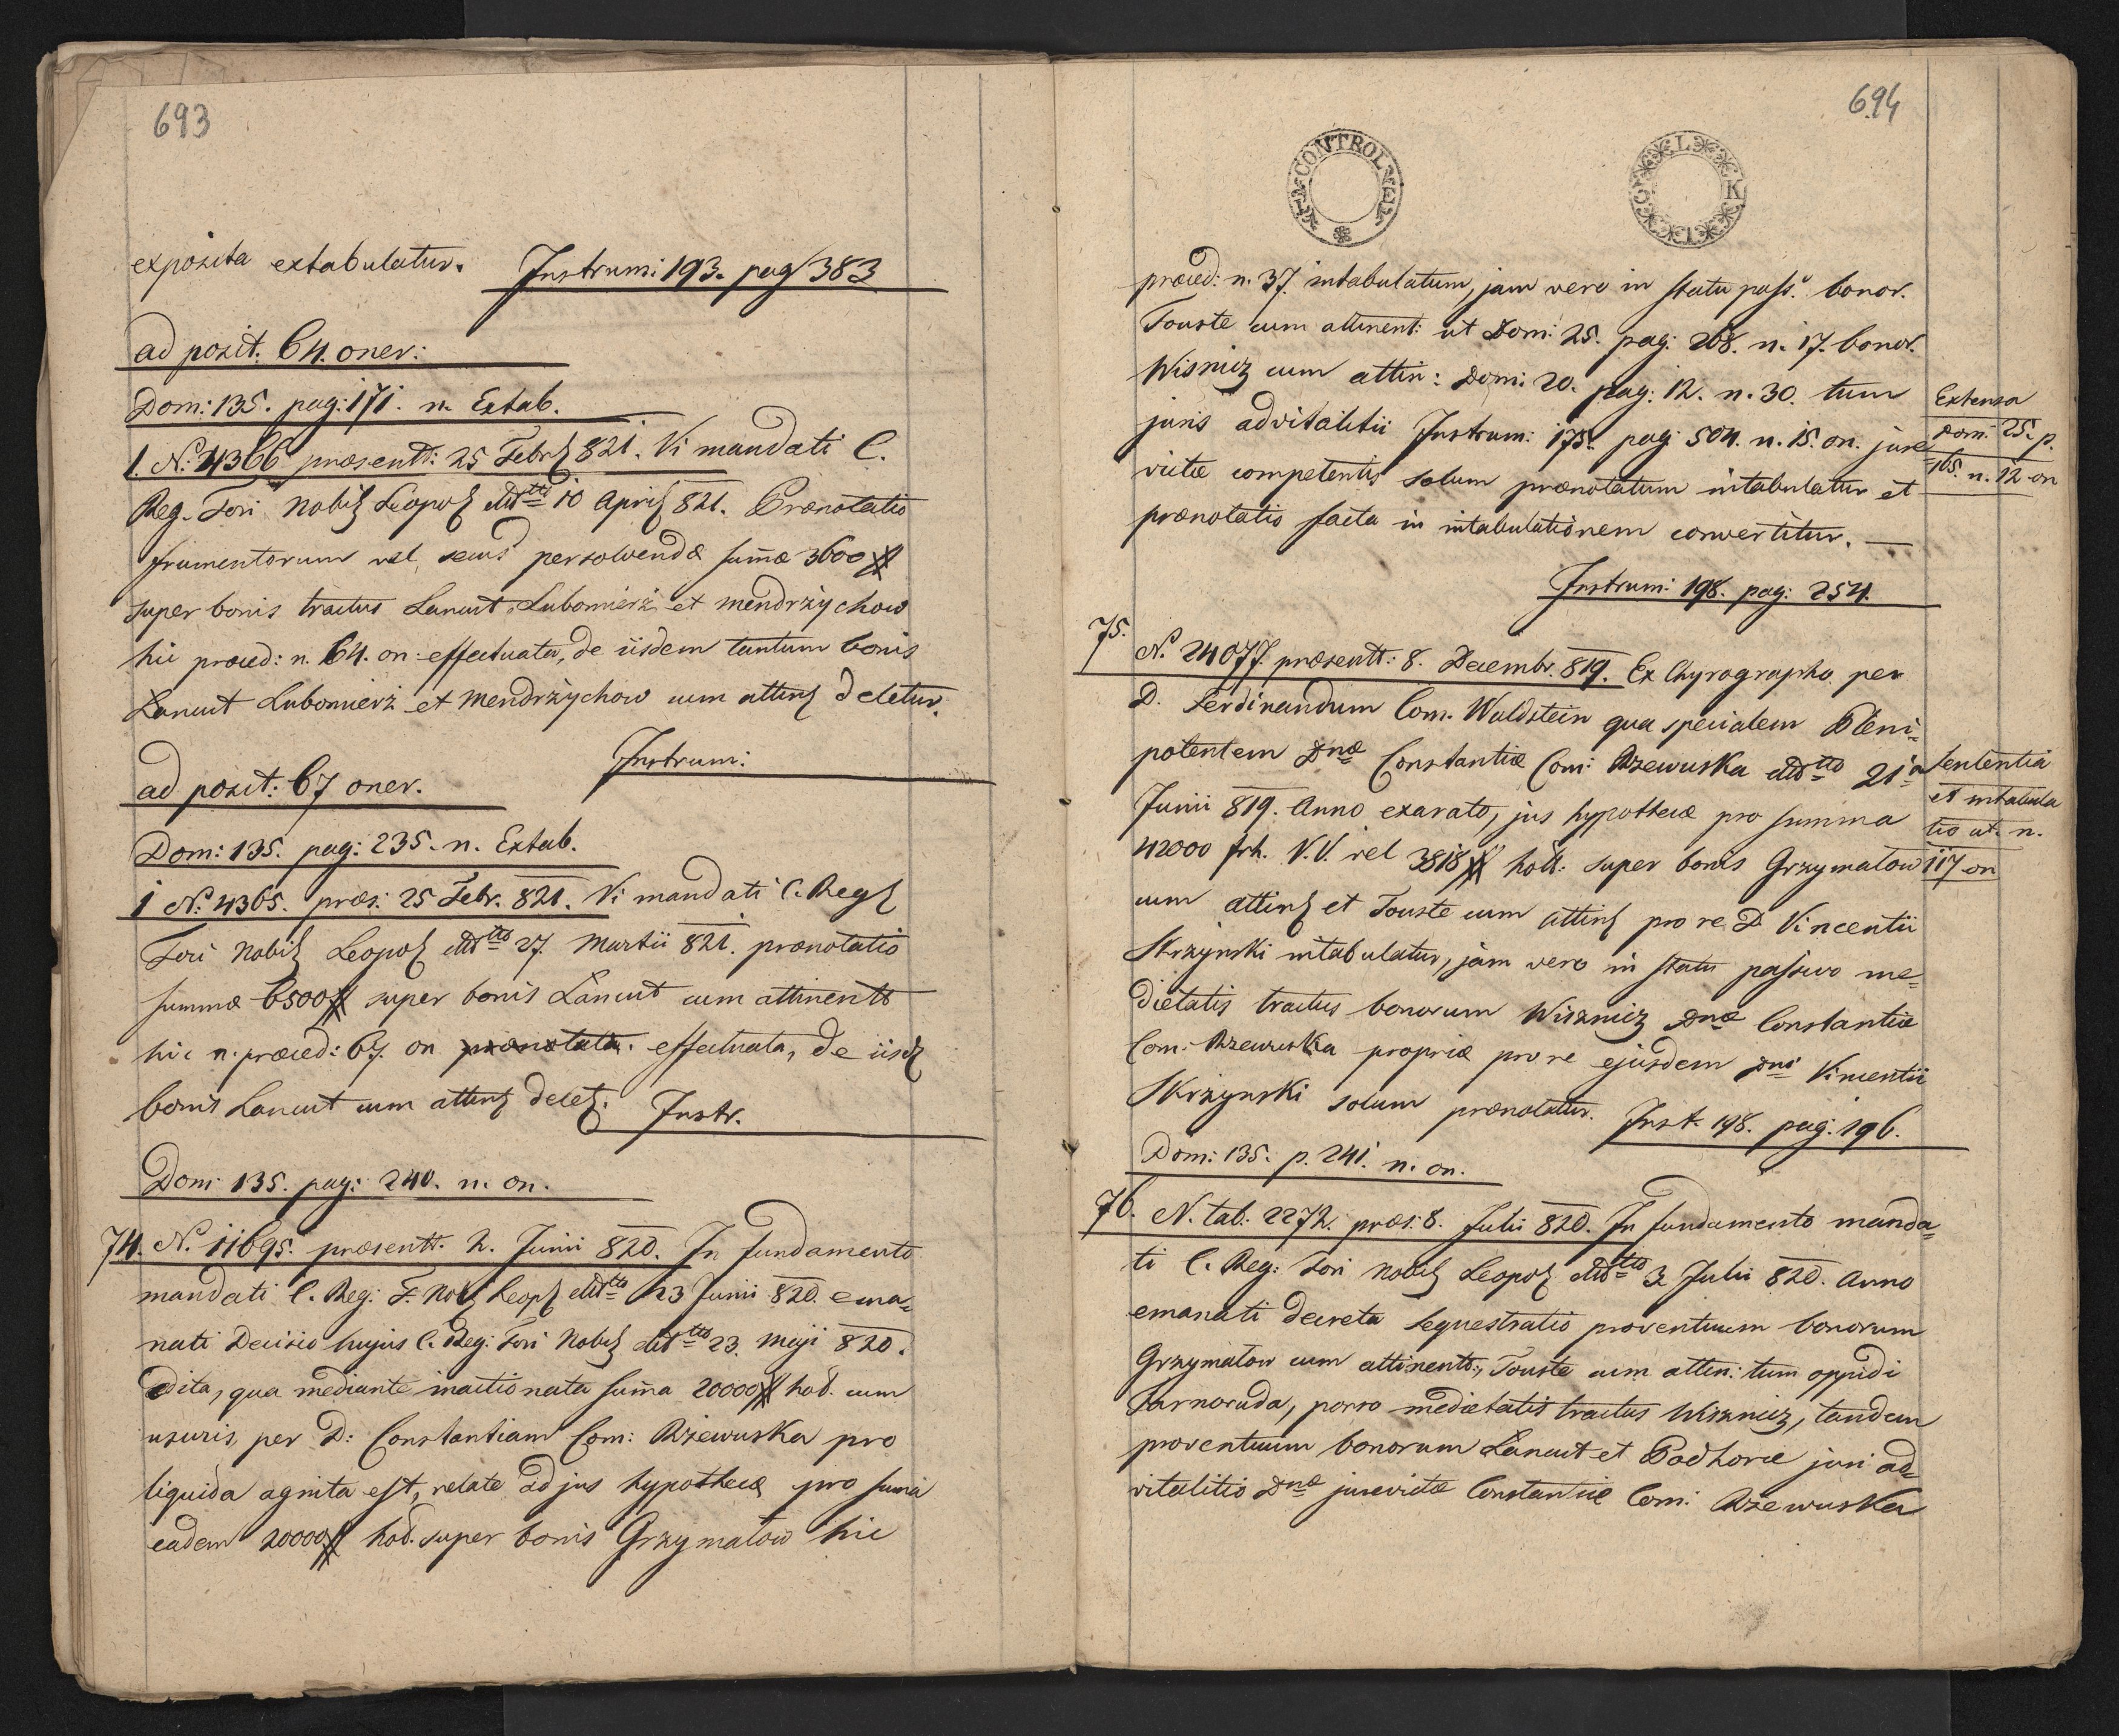 693
exposita extabulatur. Instrum: 193. pag 383
ad posit. 64. oner:
Dom: 135. pag: 171. n. Extab.
1. N: 4366 praesentt: 25 Febr 821. Vi mandati C.
Reg. Fori Nobil Leopol ddtto 10 April 821. Praenotatio
frumentorum vel secus persolvendae sum̄ae 3600 #
super bonis tractus Lancut Lubomierz et Mendrzychow
hic praeced: n. 64. on: effectuata, de iisdem tantum bonis
Lancut Lubomierż et Mendrżychow cum attin deletur.
Instrum:
ad posit: 67 oner.
Dom: 135. pag: 235. n. Extab.
1 N: 4365. praes: 25 Febr. 821. Vi mandati C. Reg
Fori Nobil Leopol ddtto 27. Martii 821. praenotatio
summae 6500 # super bonis Lancut cum attinentt
hic n. praeced: 67. on praenotata. effectuata, de iisd
bonis Lancut cum attin delet. Instr.
Dom: 135. pag: 240. n. on.
74. N. 11695. praesentt. 2. Junii 820. In fundamento
mandati C. Reg: F. Nob Leop ddtto 23 Junii 820. ema=
nati Decisio hujus C. Reg. Fori Nobil ddtto 23. Maji 820.
edita, qua mediante inactionata sum̄a 20000 # hod. cum
usuris per D: Constantiam Com: Rżewuska pro
liquida agnita est, relate ad jus hypothecae pro sum̄a
eadem 20000 # hod. super bonis Grzymałow hic
694
CONTROL
K
praeced: n. 37. intabulatum, jam vero in statu pass. bonor.
Touste cum attinent: ut Dom: 25. pag: 268. n. 17. bonor.
Wisnicz cum attin: Dom: 20. pag: 12. n. 30. tum
juris advitalitii Instrum: 175. pag: 504. n. 15. on. jure
victae competentis solum praenotatum intabulatur et
praenotatio facta in intabulationem convertitur. —
Extensa
Dom: 25. p.
165. n. 12 on
Instrum: 198. pag: 254.
75. N. 24077. praesentt: 8. Decembr. 819. Ex Chyrographo per
D. Ferdinandum Com. Waldstein qua specialem Pleni=
potentem Dnae Constantiae Com: Rzewuska ddtto 21a
Junii 819. Anno exarato, jus hypothecae pro summa
42000 frh. V.V. vel 3818 # holl: super bonis Grzymałow
cum attin et Touste cum attin pro re D. Vincentii
Skrzynski intabulatur, jam vero in statu passivo me=
dietatis tractus bonorum Wisznicz Dnae Constantiae
Com: Rzewuska propriae pro re ejusdem Dni Vincentii
Skrżynski solum praenotatur. Inst. 198. pag: 196.
Sententia
et intabula
tio ut. n.
117 on
Dom: 135. p. 241. n. on.
76. N. tab: 2272. praes: 8. Julii 820. In fundamento manda=
ti C. Reg: Fori Nobil Leopol ddtto 3 Julii 820. Anno
emanati decreta sequestratio proventuum bonorum
Grzymałow cum attinentt, Touste cum attin: tum oppidi
Tarnoruda, porro medietatis tractus Wisznicz, tandem
proventuum bonorum Lancut et Podhorce juri ad=
vitalitio Dnae jurevictae Constantiae Com: Rżewuska